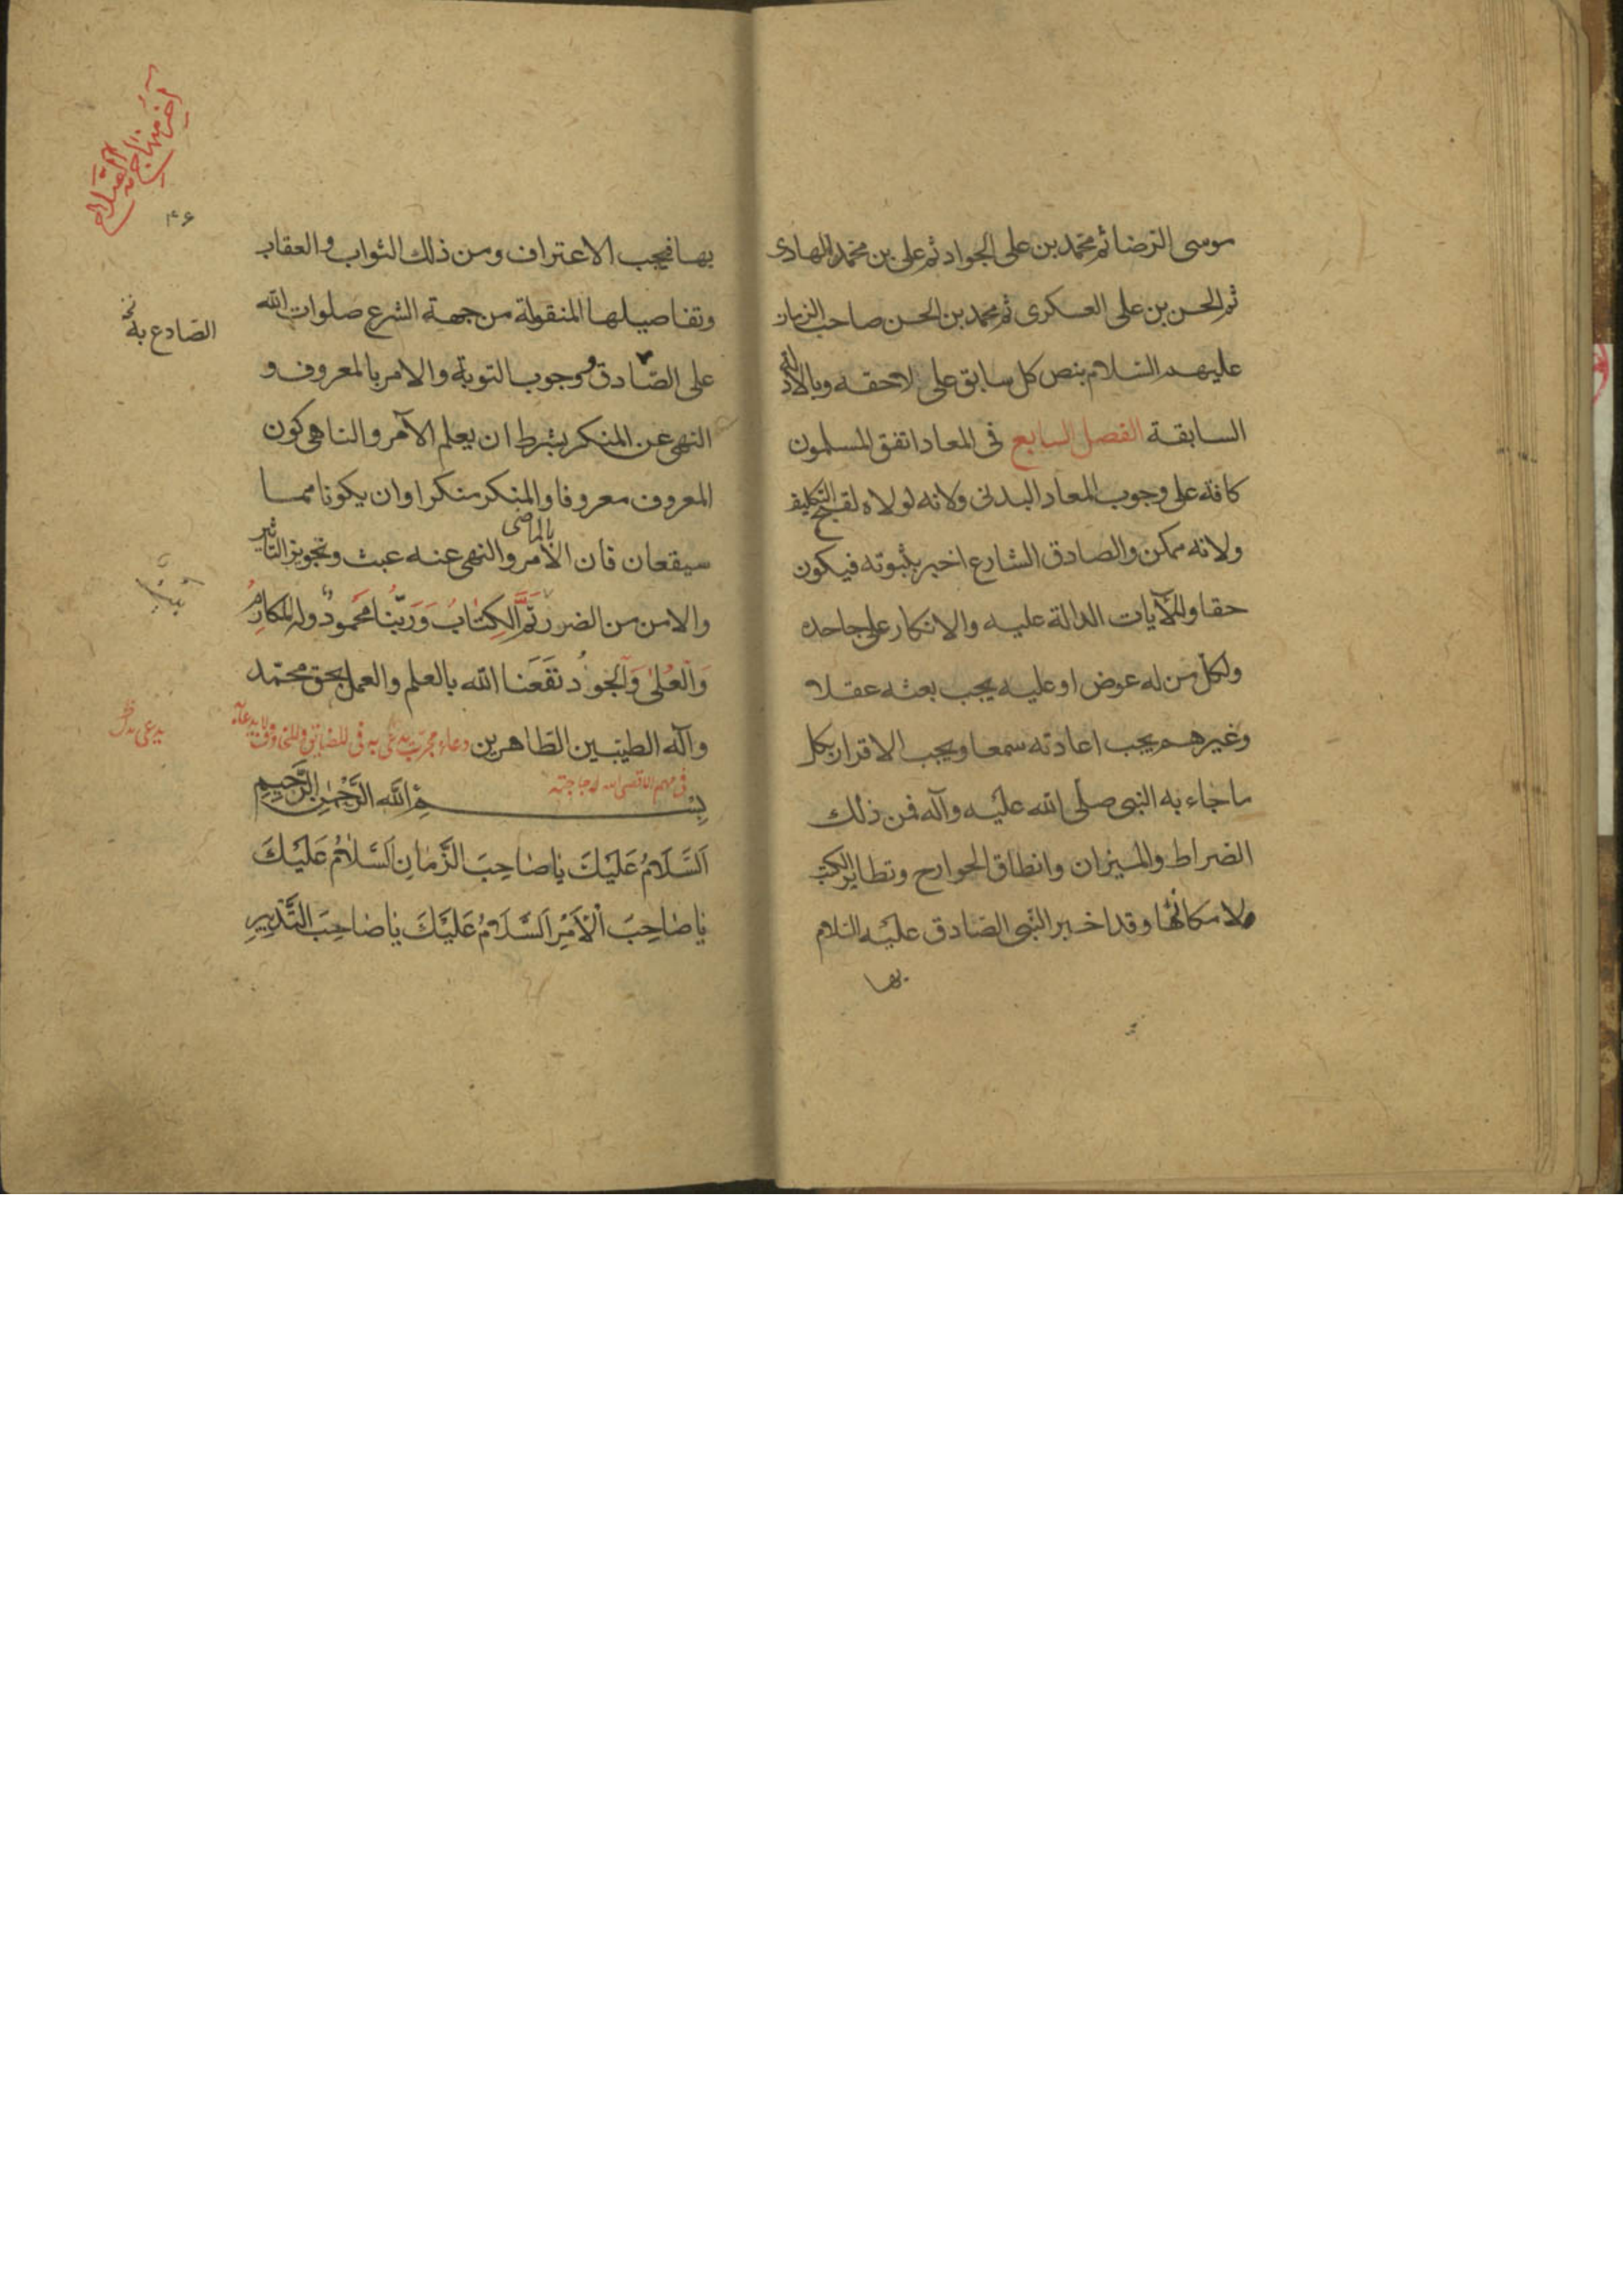 موسى الرضا ثم محمد بن على الجواد ثم على بن محمد الهادى
ثم الحسن بن على العسكرى ثم محمد بن الحسن صاحب الزمان
عليهم السلام بنص كل سابق على لاحقه وبالادلة
السابقة الفصل السابع فى المعاد اتفق المسلمون
كافة على وجوب المعاد البدنى ولانه لولاه لقبح التكليف
ولانه ممكن والصادق الشارع اخبر بثبوته فيكون
حقا وللآيات الدالة عليه والانكار على جاحده
ولكل من له عوض او عليه يجب بعثه عقلا
وغيرهم يجب اعادته سمعا ويجب الاقرار بكل
ما جاء به النبى صلى الله عليه وآله فمن ذلك
الصراط والميزان وانطاق الجوارح وتطاير الكتب
لامكانها وقد اخبر النبى الصادق عليه السلام
بها
آخر منهاج الصلاح
۴۶
بها فيجب الاعتراف ومن ذلك الثواب والعقاب
وتفاصيلها المنقولة من جهة الشرع صلوات الله
الصّادع به
على الصّادق ووجوب التوبة والامر بالمعروف و
النهى عن المنكر بشرط ان يعلم الآمر والناهى كون
المعروف معروفا والمنكر منكرا وان يكونا مما
سيقعان فان الامر بالماضى والنهى عنه عبث وتجويز التاثير
والامن من الضرر تَمَّ الْكِتٰابُ وَرَبُّنٰا مَحْمودٌ وله المَكارِمُ
وَالْعُلىٰ وَالْجُودُ نَفَعَنا الله بالعلم والعمل بحق محمّد
وآله الطيّبين الطّاهرين دعاء مجرّب يدعى به فى للمضايق وللمخاوف
فى مهم الا قضى الله له حاجته
بِسْمِ اللّٰه الرَّحْمٰنِ الرَّحِيمِ
اَلسَّلَامُ عَلَيْكَ يٰا صٰاحِبَ الزَّمٰانِ اَلسَّلٰامُ عَلَيْكَ
يٰا صٰاحِبَ الْاَمْرِ اَلسَّلَامُ عَلَيْكَ يٰا صٰاحِبَ التَّدْبِيرِ